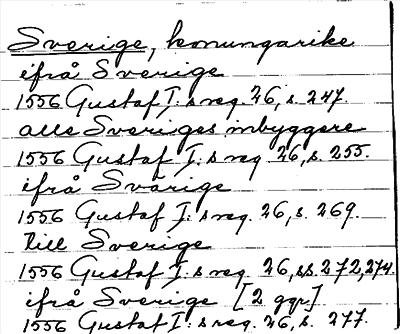 Sverige, konungarike
ifrå Sverige
1556 Gustaf I: s reg. 26, s. 247.
alle Sveriges inbyggere
1556 Gustaf I: s reg. 26, s. 255.
ifrå Svärige
1556 Gustaf I: s reg. 26, s. 269.
till Sverige
1556 Gustaf I: s reg. 26, ss. 272, 274.
ifrå Sverige [2 ggr]
1556 Gustaf I: s reg. 26, s. 277.